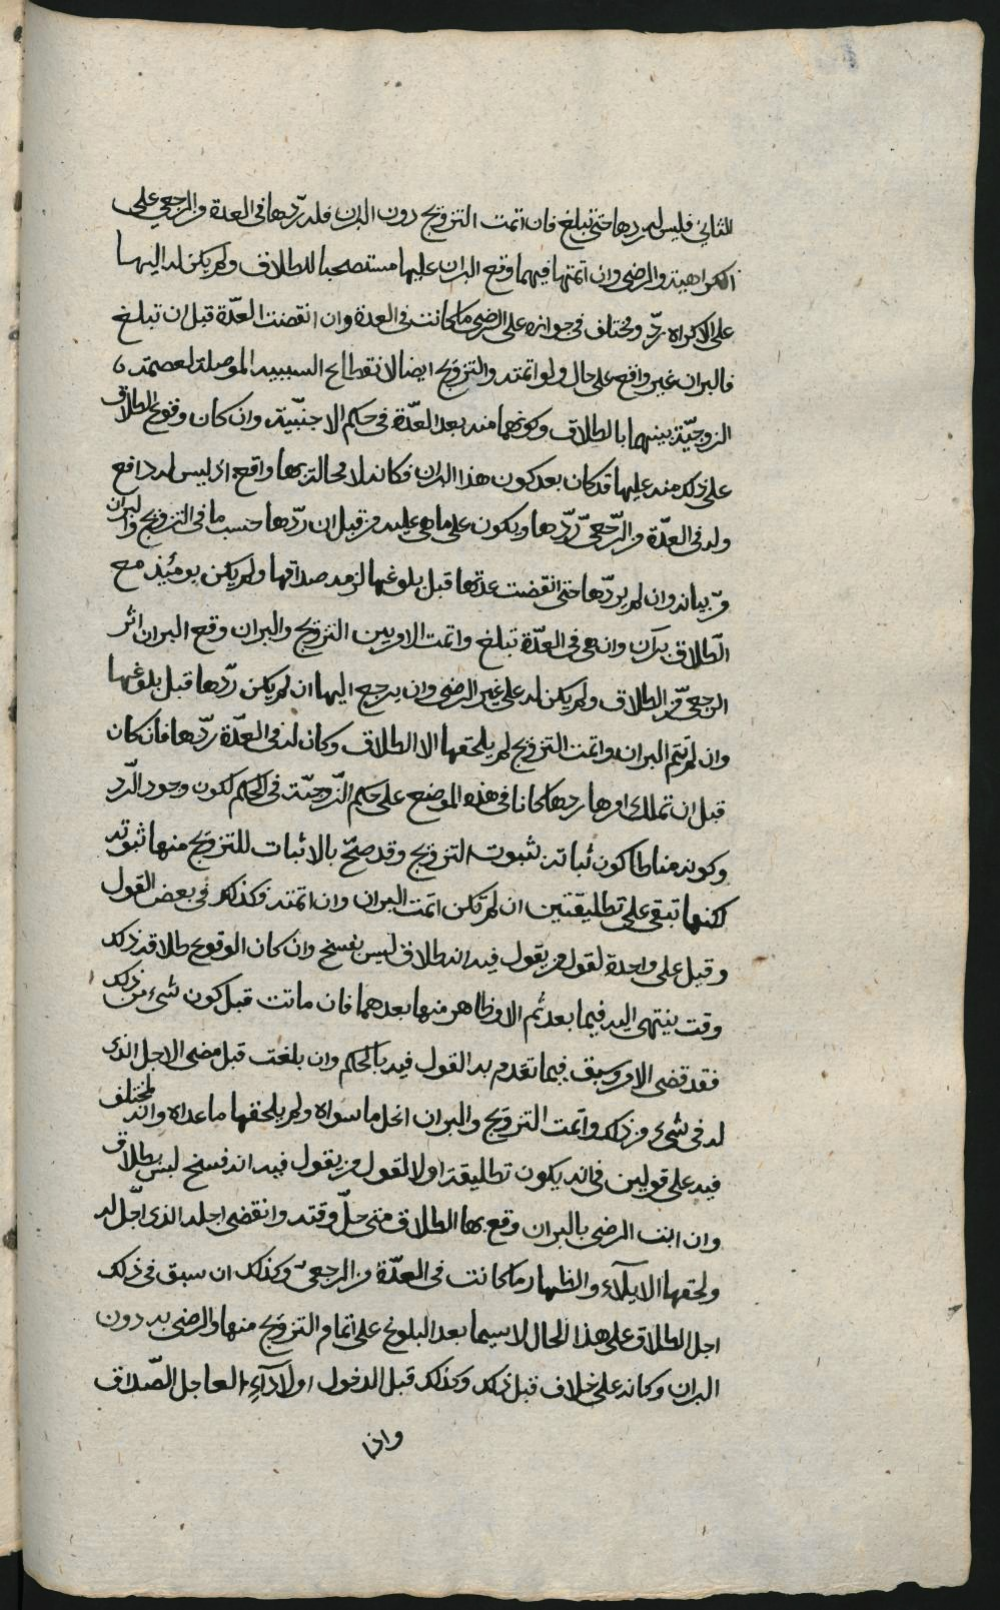 الثاني فليس له ردها حتى تبلغ فان اتمت التزويج دون البران فله ردّها في العدة من الرجعي على
الكراهية والرضى وان اتمتها فيهما وقع البران عليها مستصحبا للطلاق ولم يكن له اليها
على الاكراه ردّ ومختلف في جوازه على الرضى ما كانت في العدة وان انقضت العدّة قبل ان تبلغ
فالبران غير واقع على حال ولو اتمته والتزويج ايضا لانقطاع السببية الموصلة لعصمة
الزوجيّة بينهما بالطلاق وكونهما منه بعد العدّة في حكم الاجنبيّة وان كان وقوع الطلاق
على ذلك منه عليها قد كان بعد كون هذا البران فكانه لا محالة بها واقع اذ ليس له دافع
وله في العدّة من الرّجعيّ ردّها ويكون على ما هي عليه من قبل ان ردّها حسب ما في التزويج والبران
مرّ بيانه وان لم يردّها حتى انقضت عدتها قبل بلوغها لزمه صداقها ولم يكن يومئذ مع
الطّلاق برآن وان هي في العدّة تبلغ واتمت الامرين التزويج والبران وقع البران اثر
الرجعيّ من الطلاق ولم يكن له على غير الرضى وان يرجع اليها ان لم يكن ردّها قبل بلوغها
وان لم تتم البران واتمت التزويج لم يلحقها الا الطلاق وكان له في العدّة ردّها فان كان
قبل ان تملك امرها ردها كانا في هذه الموضع على حكم الزّوجيّة في الحكم لكون وجود الرّد
وكونه مناطا كون ثباته بثبوت التزويج وقد صحّ بالاثبات للتزويج منها ثبوته
لكنها تبقى على تطليقتين ان لم تكن اتمت البران وان اتمته فكذلك في بعض القول
وقيل على واحدة لقول من يقول فيه انه طلاق ليس بفسخ وان كان الوقوع طلاقه ذلك
وقت ينتهى اليه فيما بعد ثم الامر ظاهر منها بعدهما فان ماتت قبل كون شيء من ذلك
فقد قضى الامر وسبق فيما تقدم به القول فيه بالحكم وان بلغت قبل مضى الاجل الذى
له في شيء من ذلك واتمت التزويج والبران انحل ما سواه ولم يلحقها ما عداه وانه لمختلف
فيه على قولين في انه يكون تطليقة او لا لقول من يقول فيه انه فسخ ليس بطلاق
وان ابت الرضى بالبران وقع بها الطلاق متى حلّ وقته وانقضى اجله الذى اجّل له
ولحقها الايلآء والظهار ما كانت في العدّة من الرجعيّ وكذلك ان سبق في ذلك
اجل الطلاق على هذا الحال لا سيما بعد البلوغ على اتمام التزويج منها والرضى به دون
البران وكانه على خلاف قبل ذلك وكذلك قبل الدخول او لا دآء العاجل الصّداق
واذا